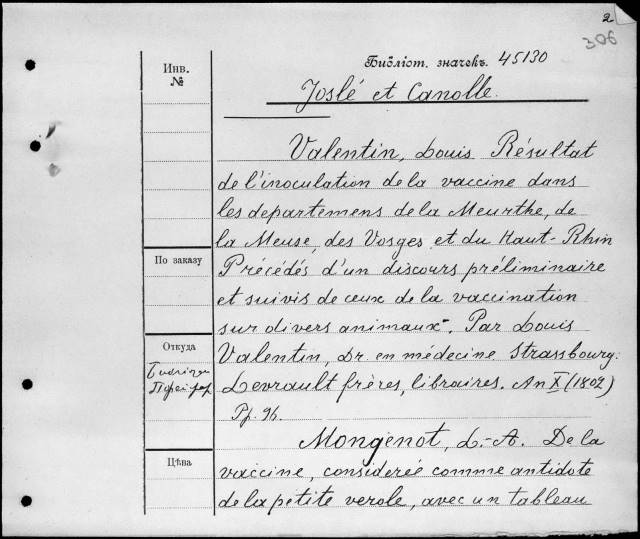 2
306
Инв.
№
Библіот. значекъ. 45130
Joslé et Canolle.
Valentin, Louis Résultat
de l'inoculation de la vaccine dans
les departemens de la Meurthe, de
la Meuse, des Vosges et du Haut-Rhin
По заказу
Précédés d'un discours préliminaire
et suivis de ceux de la vaccination
sur divers animaux. Par Louis
Откуда
Valentin, Dr. en médecine Strassbourg:
Levrault frères, libraires. An X (1802)
Pp. 96.
Mongenot, L.-A. De la
Цѣна
vaccine, considerée comme antidote
de la petite verole, avec un tableau